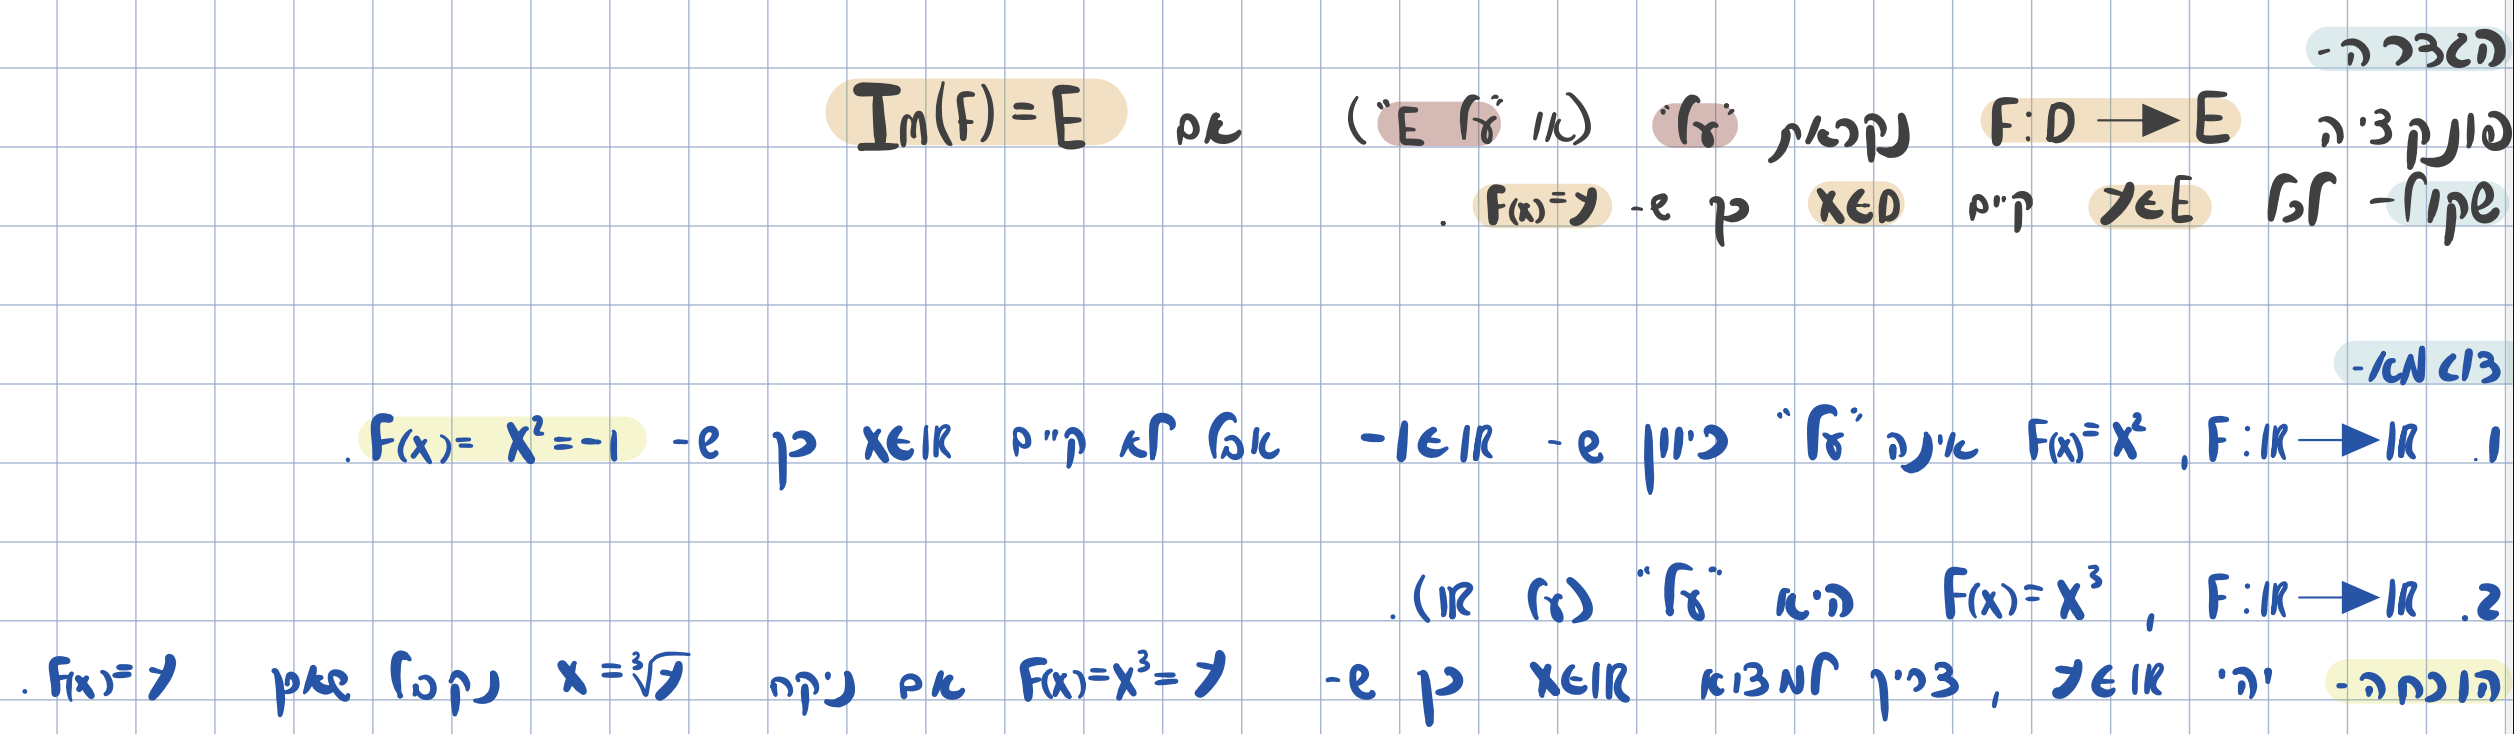 הגדרה-
פונקציה F: D → E נקראת "על" (או "על E") אם Im(F) = E
שקול- לכל y∈E קיים x∈D כך ש- F(x)=y.
דוגמאות-
1. F: ℝ → ℝ, F(x)=x² איננה "על" כיוון ש- -1∈ℝ אבל לא קיים x∈ℝ כך ש- F(x)= x²=-1.
2. F: ℝ → ℝ, F(x)=x³ היא "על" (על ℝ).
הוכחה- יהי y∈ℝ, צריך למצוא x∈ℝ כך ש- F(x)=x³=y אם ניקח x=³√y נקבל שאכן F(x)=y.